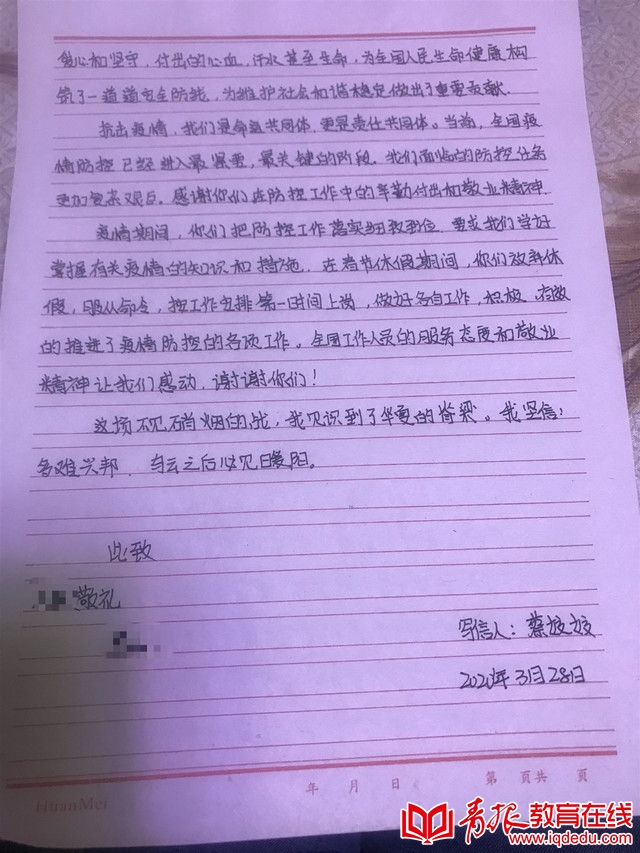 爱心和坚守，付出的心血，汗水甚至生命，为全国人民生命健康构
筑了一道道安全防线，为维护社会和谐稳定做出了重要贡献.
抗击疫情，我们是命运共同体，更是责任共同体。当前，全国疫
情防控已经进入最紧要，最关键的阶段. 我们面临的防控任务
更加复杂艰巨。感谢你们在防控工作中的辛勤付出和敬业精神
疫情期间，你们把防控工作落实细致到位，要求我们学好
掌握有关疫情的知识和措施. 在春节休假期间，你们放弃休
假，服从命令，按工作安排第一时间上岗，做好各自工作，积极、有效
的推进了疫情防控的各项工作。全国工作人员的服务态度和敬业
精神让我们感动，谢谢你们！
这场不见硝烟的战，我见识到了华夏的脊梁。我坚信：
多难兴邦 乌云之后必见暖阳。
此致
敬礼
写信人：蔡
2020年3月28日
年 月 日 第 页共 页
HuanMei
青报教育在线
www.iqdedu.com